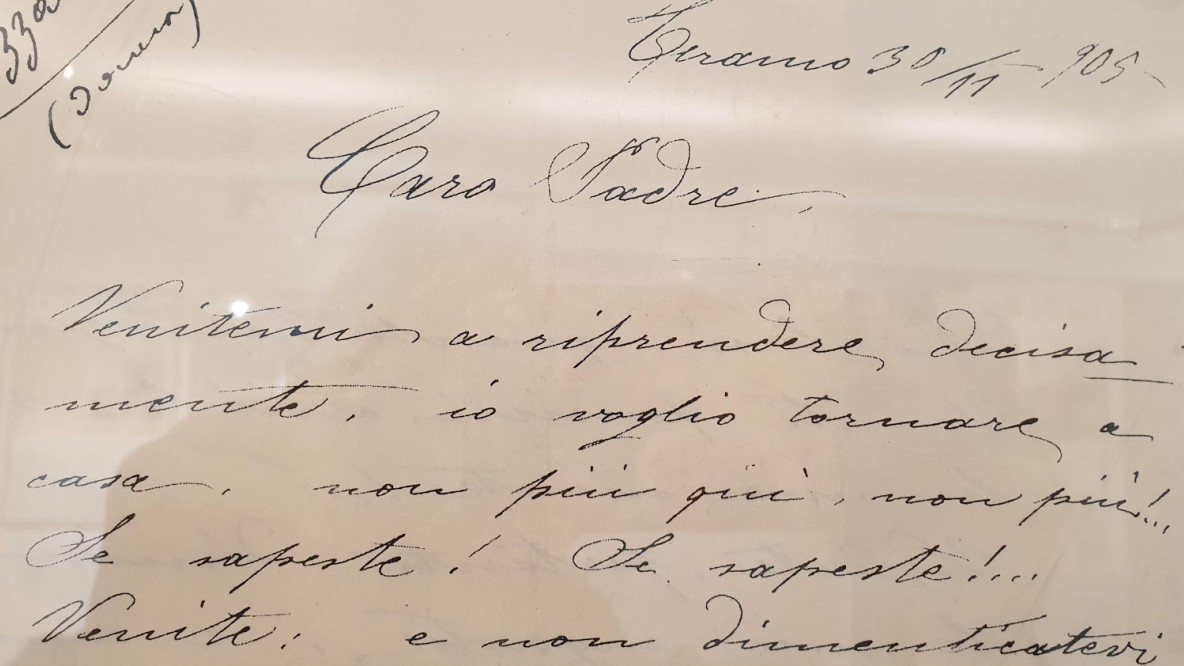 (Donna)
Teramo 30/11 905
Caro Padre,
Venitemi a riprendere, decisa
mente, io voglio tornare a
casa, non più quì, non più!...
Se sapeste! Se sapeste!...
Venite: e non dimenticatevi